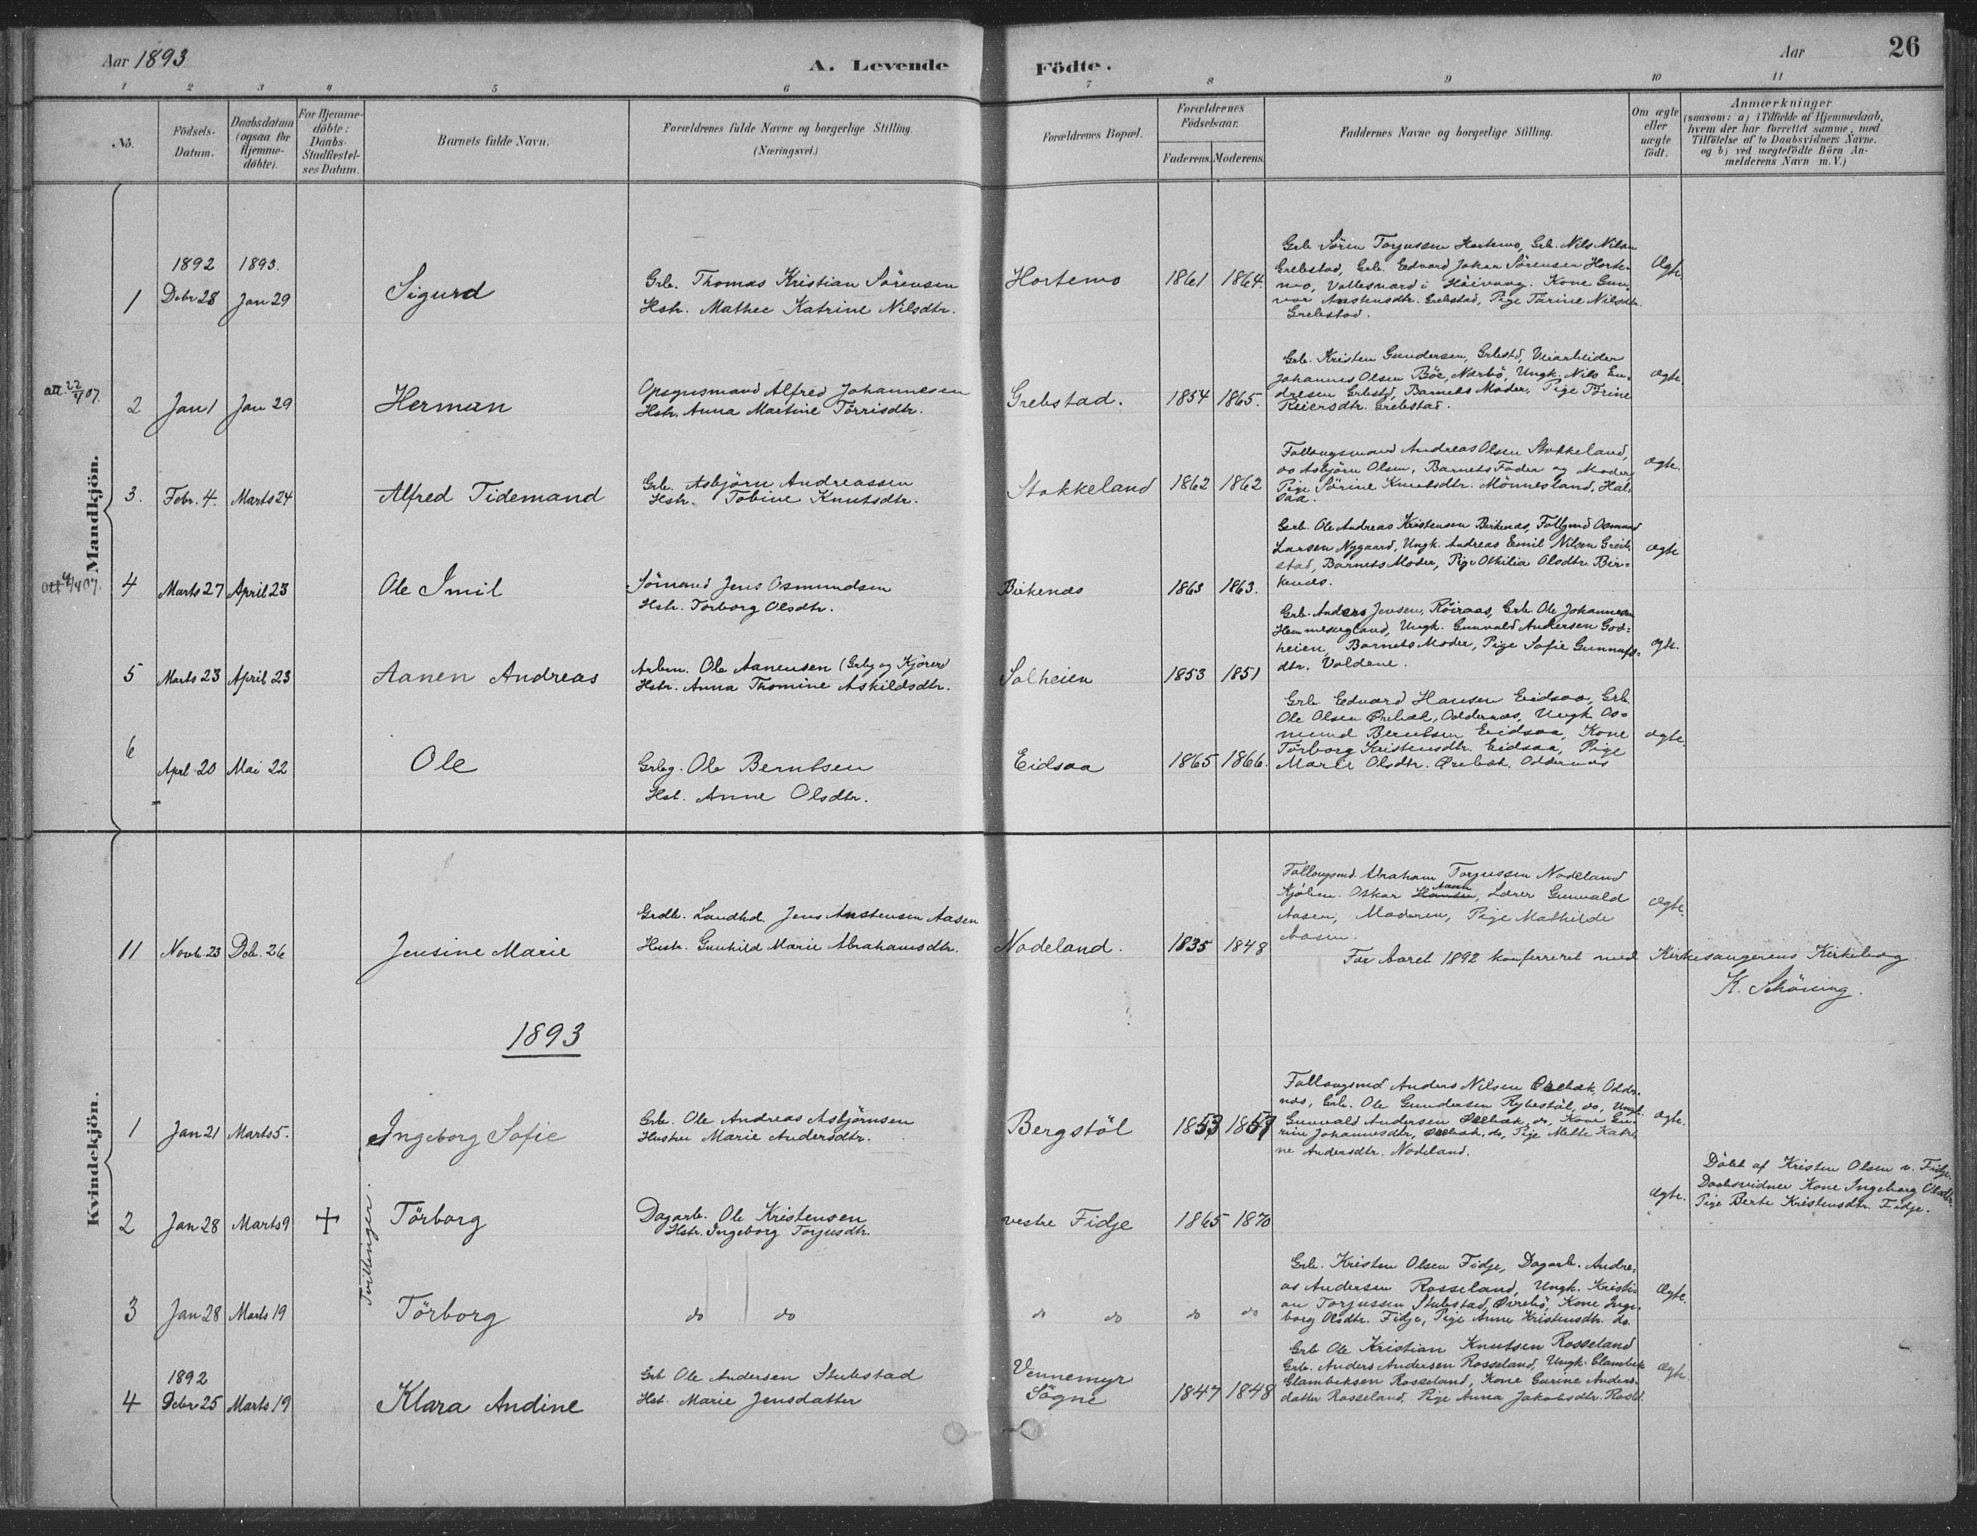 Aar 1893
A. Levende Födte.
Aar
26
1
2
3
4
5
6
7
8
9
10
11
No.
Födsels-Datum.
Daabsdatum (ogsaa for Hjemme-döbte).
For Hjemme-döbte: Daabs-Stadfæstel-ses Datum.
Barnets fulde Navn.
Forældrenes fulde Navne og borgerlige Stilling.
(Næringsvei.)
Forældrenes Bopæl.
Forældrenes Födselsaar.
Faderens. Moderens.
Faddernes Navne og borgerlige Stilling.
Om ægte eller uægte födt.
Anmærkninger
(saasom: a) i Tilfælde af Hjemmedaab,
hvem der har forrettet samme, med
Tilföielse af to Daabsvidners Navne.
og b) ved uægtefödte Börn An-
melderens Navn m. V.)
Mandkjön.
1892 1893.
1 Debr 28 Jan 29 Sigurd
Grb. Thomas Kristian Sörensen
Hstr. Mathee Katrine Nilsdtr.
Hortemo 1861 1864.
Grb. Sören Torjussen Hortemo, Grb. Nils Nilsen
Grebstad, Grb. Edvard Johan Sörensen Horte-
mo, Vallesværd i Höivaag. Kone Gun-
vor Anstensdtr. Grebstad, Pige Tarine Nilsdtr.
Grebstad.
Ægte
att. 22/4 07.
2 Jan 1 Jan 29 Herman
Opsynsmand Alfred Johannesen
Hstr. Anna Martine Törrisdtr.
Grebstad. 1854 1865.
Grb. Kristen Gundersen, Grbstd, Veiarbeider
Johannes Olsen Böe, Nærbö, Ungk. Nils En-
dresen Grbstd, Barnets Moder, Pige Törine
Reiersdtr. Grebstad.
ægte.
3. Febr. 4. Marts 24 Alfred Tidemand
Grb. Asbjörn Andreassen
Hstr. Tobine Knutsdtr.
Stokkeland 1862 1862
Follougsmand Andreas Olsen Stokkeland,
do Asbjörn Olsen, Barnets Fader og Moder,
Pige Sörine Knutsdtr. Mönnesland, Hal-
saa.
ægte.
att 4/4 07.
4 Marts 27 April 23 Ole Imil
Sömand Jens Osmundsen
Hstr. Torborg Olsdtr.
Birkenæs 1863 1863.
Grb. Ole Andreas Kristensen Birkenæs, Follgmd Osmund
Larsen Nygaard, Ungk. Andreas Emil Nilsen Greib-
stad, Barnets Moder, Pige Othilia Olsdtr. Bir-
kenes.
ægte
5 Marts 23 April 23 Aanen Andreas
Arbm. Ole Aanensen (Grbg og Kjörer)
Hstr. Anna Thomine Askildsdtr.
Solheien 1853 1851
Grb. Anders Jensen, Röiraas, Grb. Ole Johannesen
Hemmesugland, Ungk. Gunvald Andersen God-
heien, Barnets Moder, Pige Sofie Gunnufs-
dtr. Voldene.
ægte.
6 April 20 Mai 22 Ole
Grbg. Ole Berntsen
Hst. Anne Olsdtr.
Eidsaa 1865 1866.
Grb. Edvard Hansen Eidsaa, Grb.
Ole Olsen Örebæk, Oddernæs, Ungk. Os-
mund Berntsen Eidsaa, Kone
Törborg Kristensdtr. Eidsaa, Pige
Marie Olsdtr. Örebæk, Oddernæs
ægte.
Kvindekjön.
11 Novb. 23 Deb. 26 Jensine Marie
Grdb. Landhd. Jens Anstensen Aasen
Hustr. Gunhild Marie Abrahamsdtr.
Nodeland. 1835 1848
Follougsmd. Abraham Torjussen Nodeland
Kjöbm. Oskar Hansen Aasen, Lærer Gunvald
Aasen, Moderen, Pige Mathilde
Aasen.
ægte.
For Aaret 1892 konfereret med Kirkesangerens Kirkebog.
K. Schöning.
1893
1 Jan 21 Marts 5. Ingeborg Sofie
Grb. Ole Andreas Asbjörnsen
Hustru Marie Andersdtr.
Bergstöl 1853 1857
Follougsmd Anders Nilsen Örebæk, Odder-
næs, Grb. Ole Gundersen Rybestöl, do, Ungk.
Gunvald Andersen Örebæk, do, Kone Gu-
rine Johannesdtr, Örebæk, do, Pige Mette Katri-
ne Andersdtr. Nodeland.
ægte.
Tvillinger.
2 Jan 28 Marts 9 + Törborg
Dagarb. Ole Kristensen
Hstr. Ingeborg Torjusdtr.
vestre Fidje 1865 1870
ægte.
Döbt af Kristen Olsen v. Fidje.
Daabsvidner Kone Ingeborg Olsdtr.
Pige Berte Kristensdtr. Fidje.
3 Jan 28 Marts 19 Törborg
do do do do do do
Grb. Kristen Olsen Fidje, Dagarb. Andre-
as Andersen Rosseland, Ungk. Kristi-
an Torjussen Stubstad, Övrebö, Kone Inge-
borg Olsdtr. Fidje, Pige Anne Kristensdtr. do.
Ægte.
1892
4 Debr 25 Marts 19 Klara Andine
Grb Ole Andersen Stubstad
Hst. Marie Jensdatter
Vennemyr
Sögne 1847 1848
Grb Ole Kristian Knutsen Rosseland
Grb. Anders Andersen Rosseland, Ungk. Glambek
Glambeksen Rosseland, Kone Gurine Anders-
datter Rosseland, Pige Anna Jakobsdtr. Rossl.
Ægte